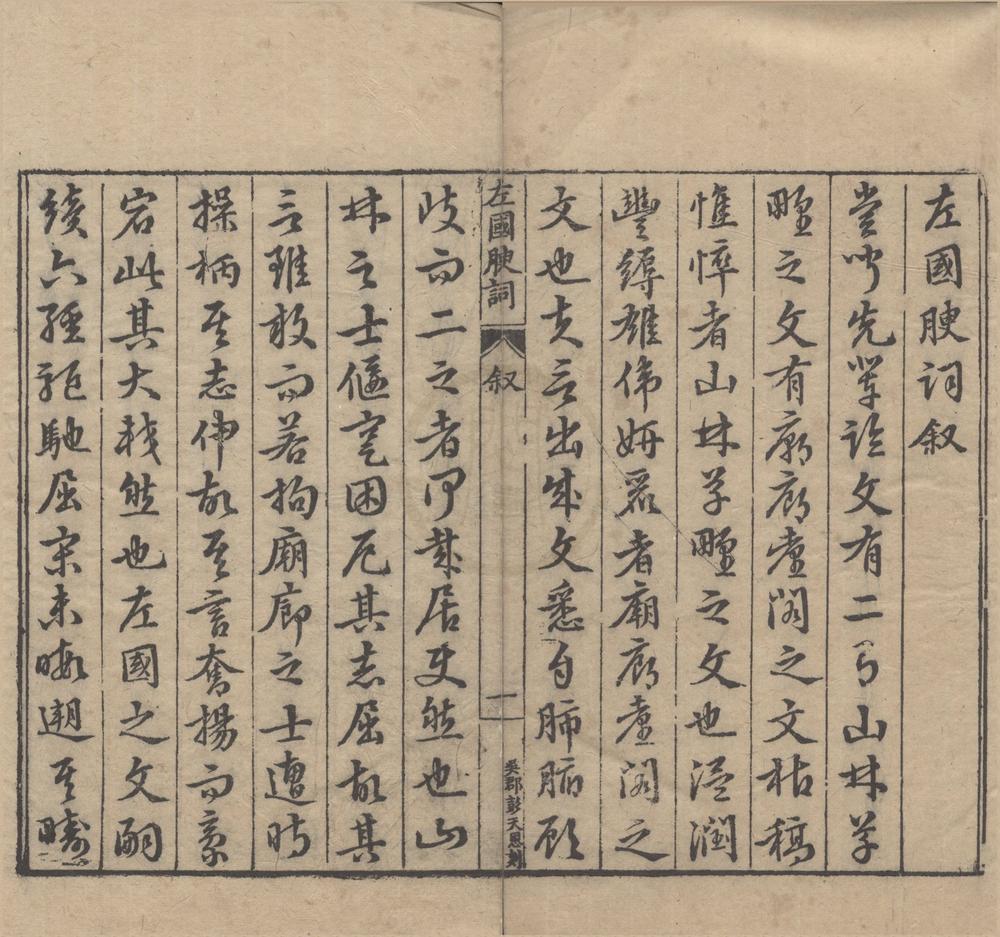 左國腴詞叙
嘗聞先輩論文有二曰山林草
野之文有廟廊臺閣之文枯槁
憔悴者山林草野之文也溫潤
豐縟雄偉妍麗者廟廊臺閣之
文也夫言出成文悉自肺腑顧
左國腴詞
叙
一
吳郡彭天恩刻
歧而二之者何哉居使然也山
林之士偃蹇困厄其志屈故其
言雖放而若拘廟廊之士遭時
操柄其志伸故其言奮揚而豪
宕此其大較然也左國之文嗣
續六經軼馳屈宋未暇遡其疇